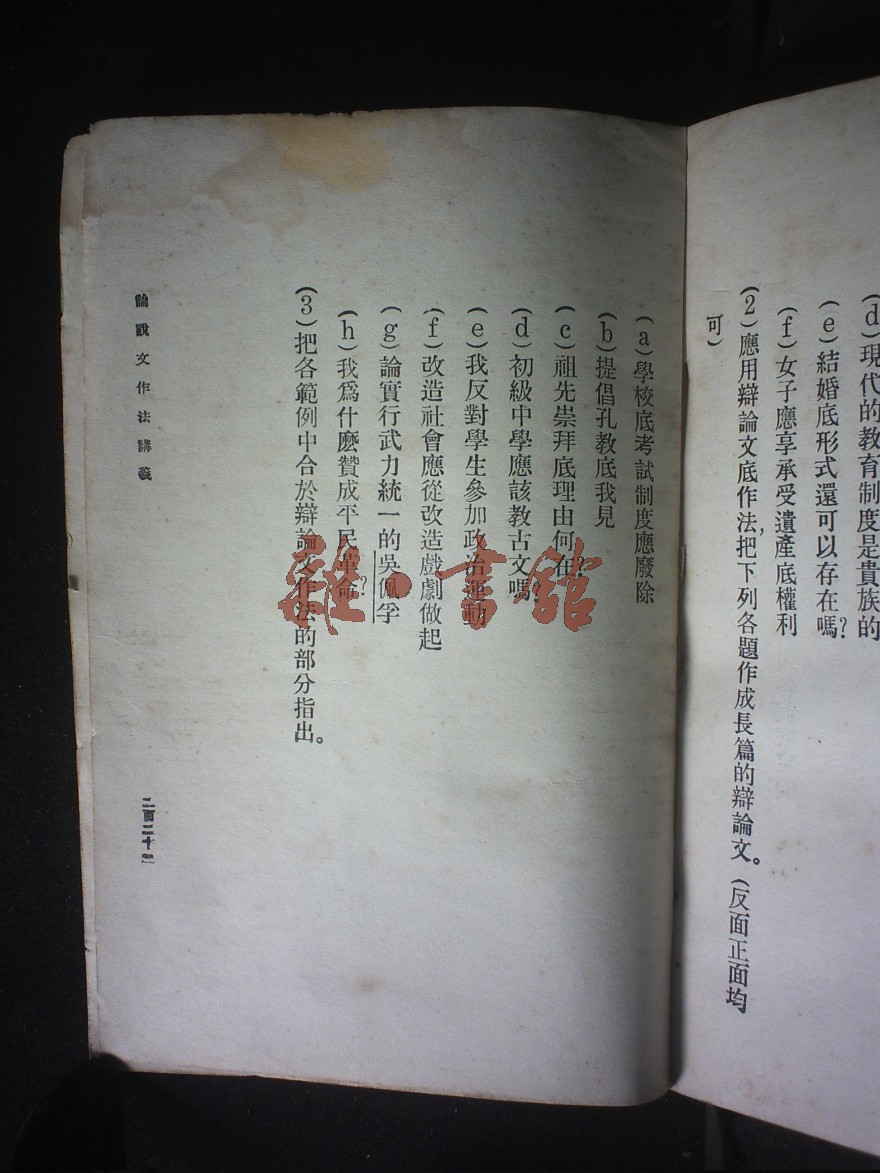 (d)現代的教育制度是貴族的
(e)結婚底形式還可以存在嗎?
(f)女子應享承受遺產底權利
(2)應用辯論文底作法,把下列各題作成長篇的辯論文。(反面正面均
可)
(a)學校底考試制度應廢除
(b)提倡孔教底我見
(c)祖先崇拜底理由何在?
(d)初級中學應該教古文嗎?
(e)我反對學生參加政治運動
(f)改造社會應從改造戲劇做起
(g)論實行武力統一的吳佩孚
(h)我爲什麽贊成平民革命?
(3)把各範例中合於辯論文作法的部分指出。
論說文作法講義
二百二十
雜·書館